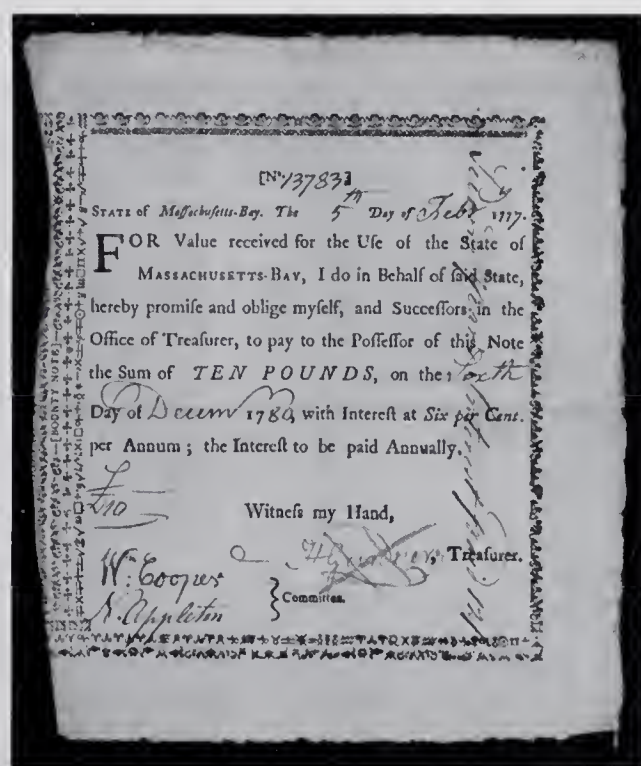 [No. 13783]
STATE of Massachusetts-Bay. The 5th Day of Feby 1777.
FOR Value received for the Use of the State of
MASSACHUSETTS-BAY, I do in Behalf of said State,
hereby promise and oblige myself, and Successors in the
Office of Treasurer, to pay to the Possessor of this Note
the Sum of TEN POUNDS, on the Sixth
Day of Decem 1780, with Interest at Six per Cent.
per Annum; the Interest to be paid Annually.
£10
Witness my Hand,
Treasurer.
Wm: Cooper
N. Appleton
Committee.
[BOUNTY NOTE]